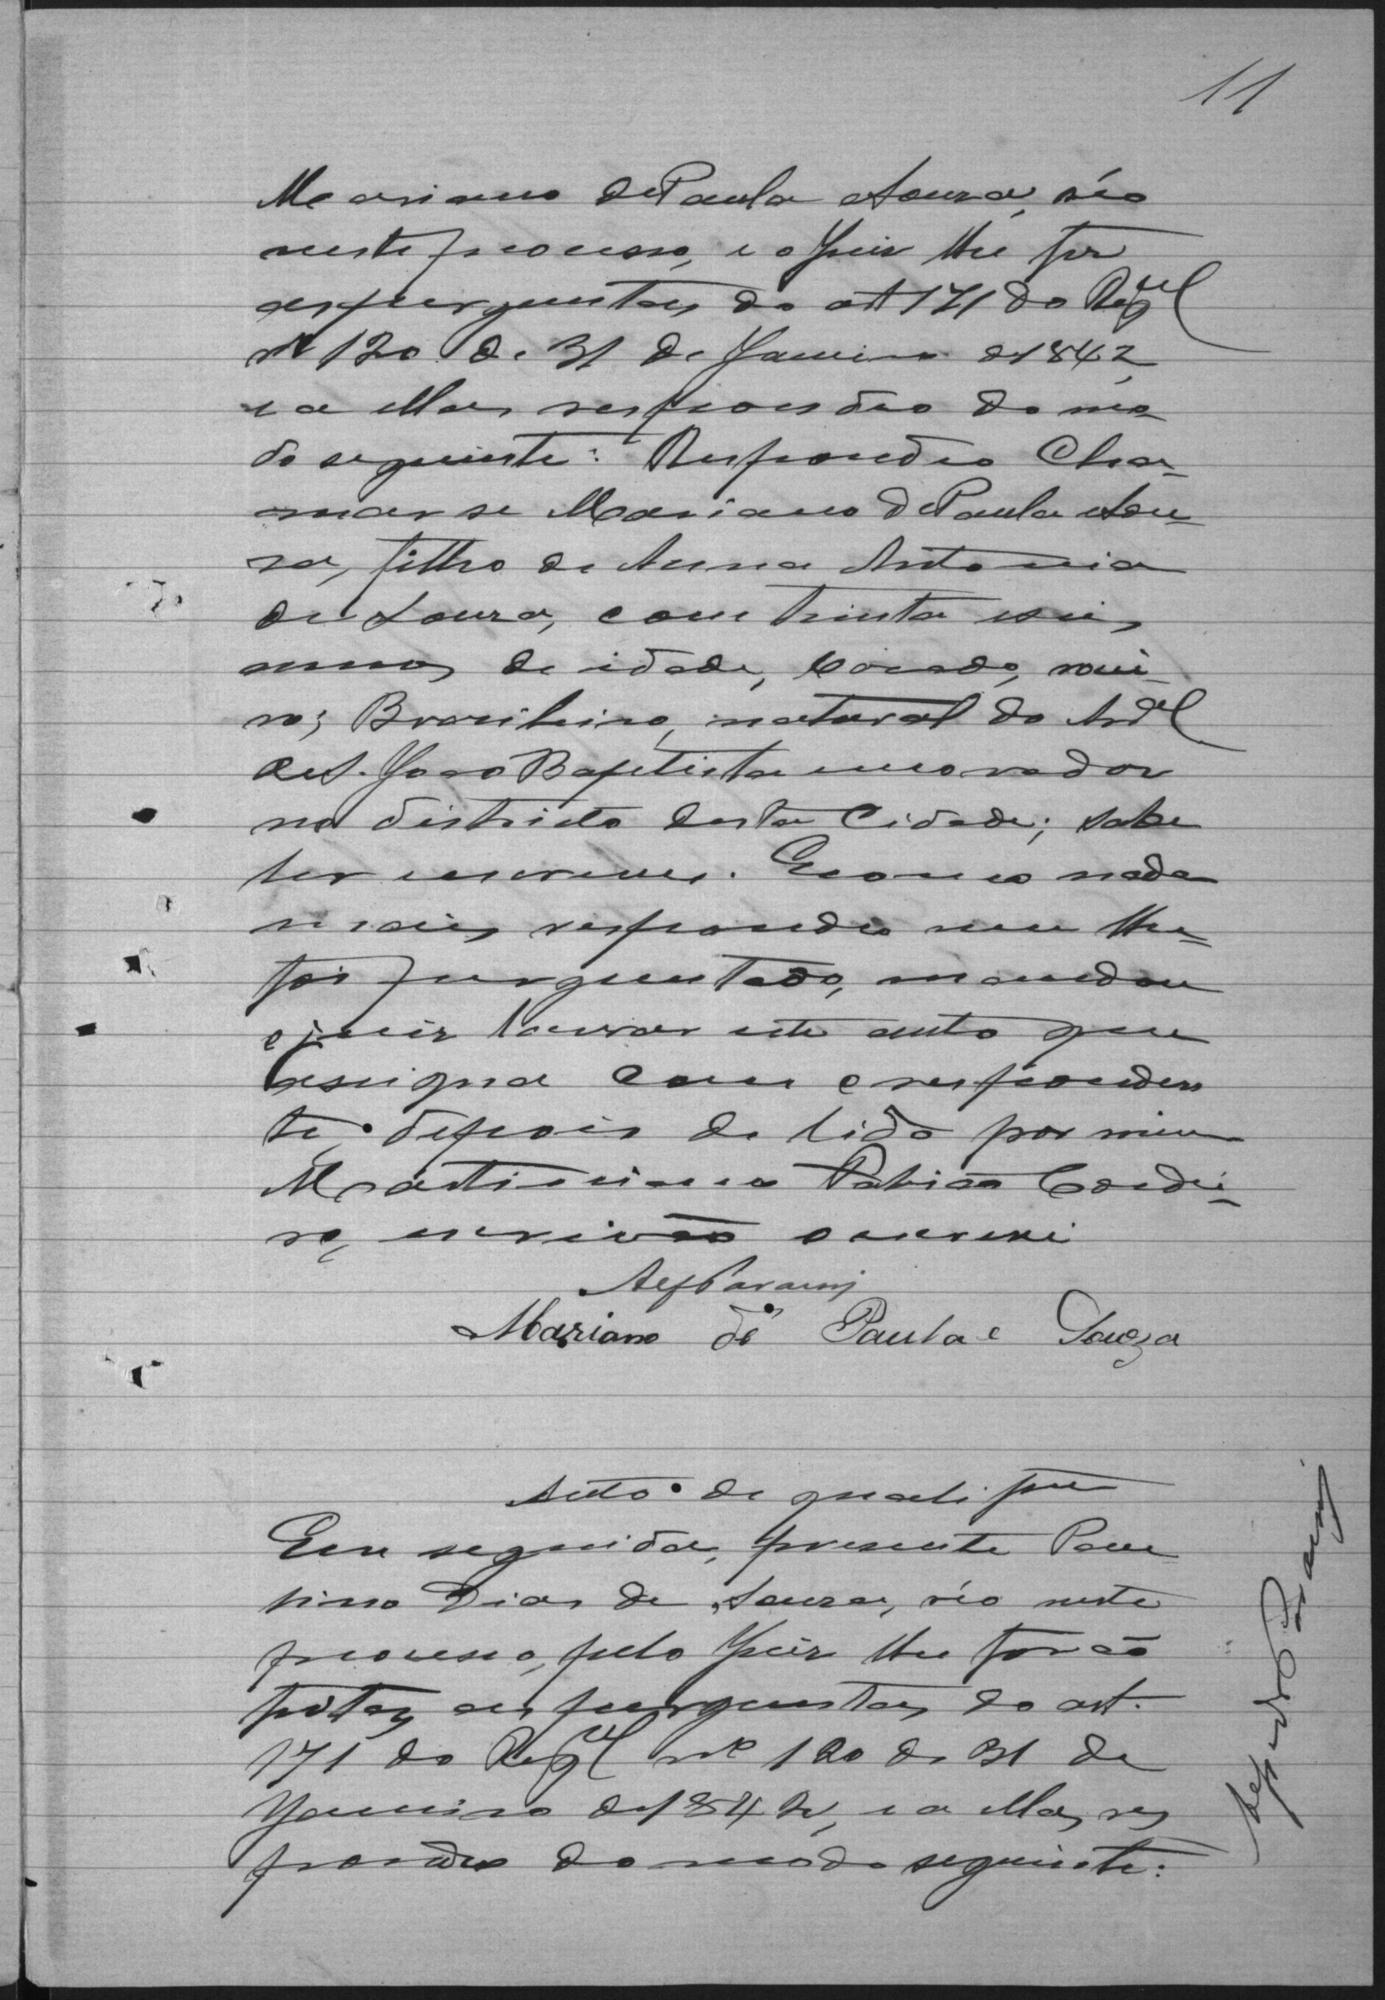 11
Mariano de Paula Souza, réo
neste processo, e o Juiz lhe fez
as perguntas do art 171 do Regul
nº 120 de 31 de Janeiro de 1842,
e a ellas respondeo do mo-
do seguinte: Respondeo Cha-
mar se Mariano de Paula Sou-
za, filho de Anna Antonia
de Souza, com trinta e seis
annos de idade, Casado,
Brasileiro, natural do
de S. João Baptista morador
no districto desta Cidade; sabe
ler e escrever. E como nada
mais respondeo nem lhe
foi perguntado, mandou
o juiz lavrar este auto que
assigna com o responden
te, depois de lido por mim
Martiniano Cordei-
ro, escrivão o escrevi
Mariano de Paula e Souza
Auto de qualifm
Em seguida, presente Pau
lino Dias de Souza, réo neste
processo, pelo Juiz lhe forão
feitas as perguntas do art.
171 do Regul nº 120 de 31 de
Janeiro de 1842, e a ellas res
pondeo do modo seguinte: